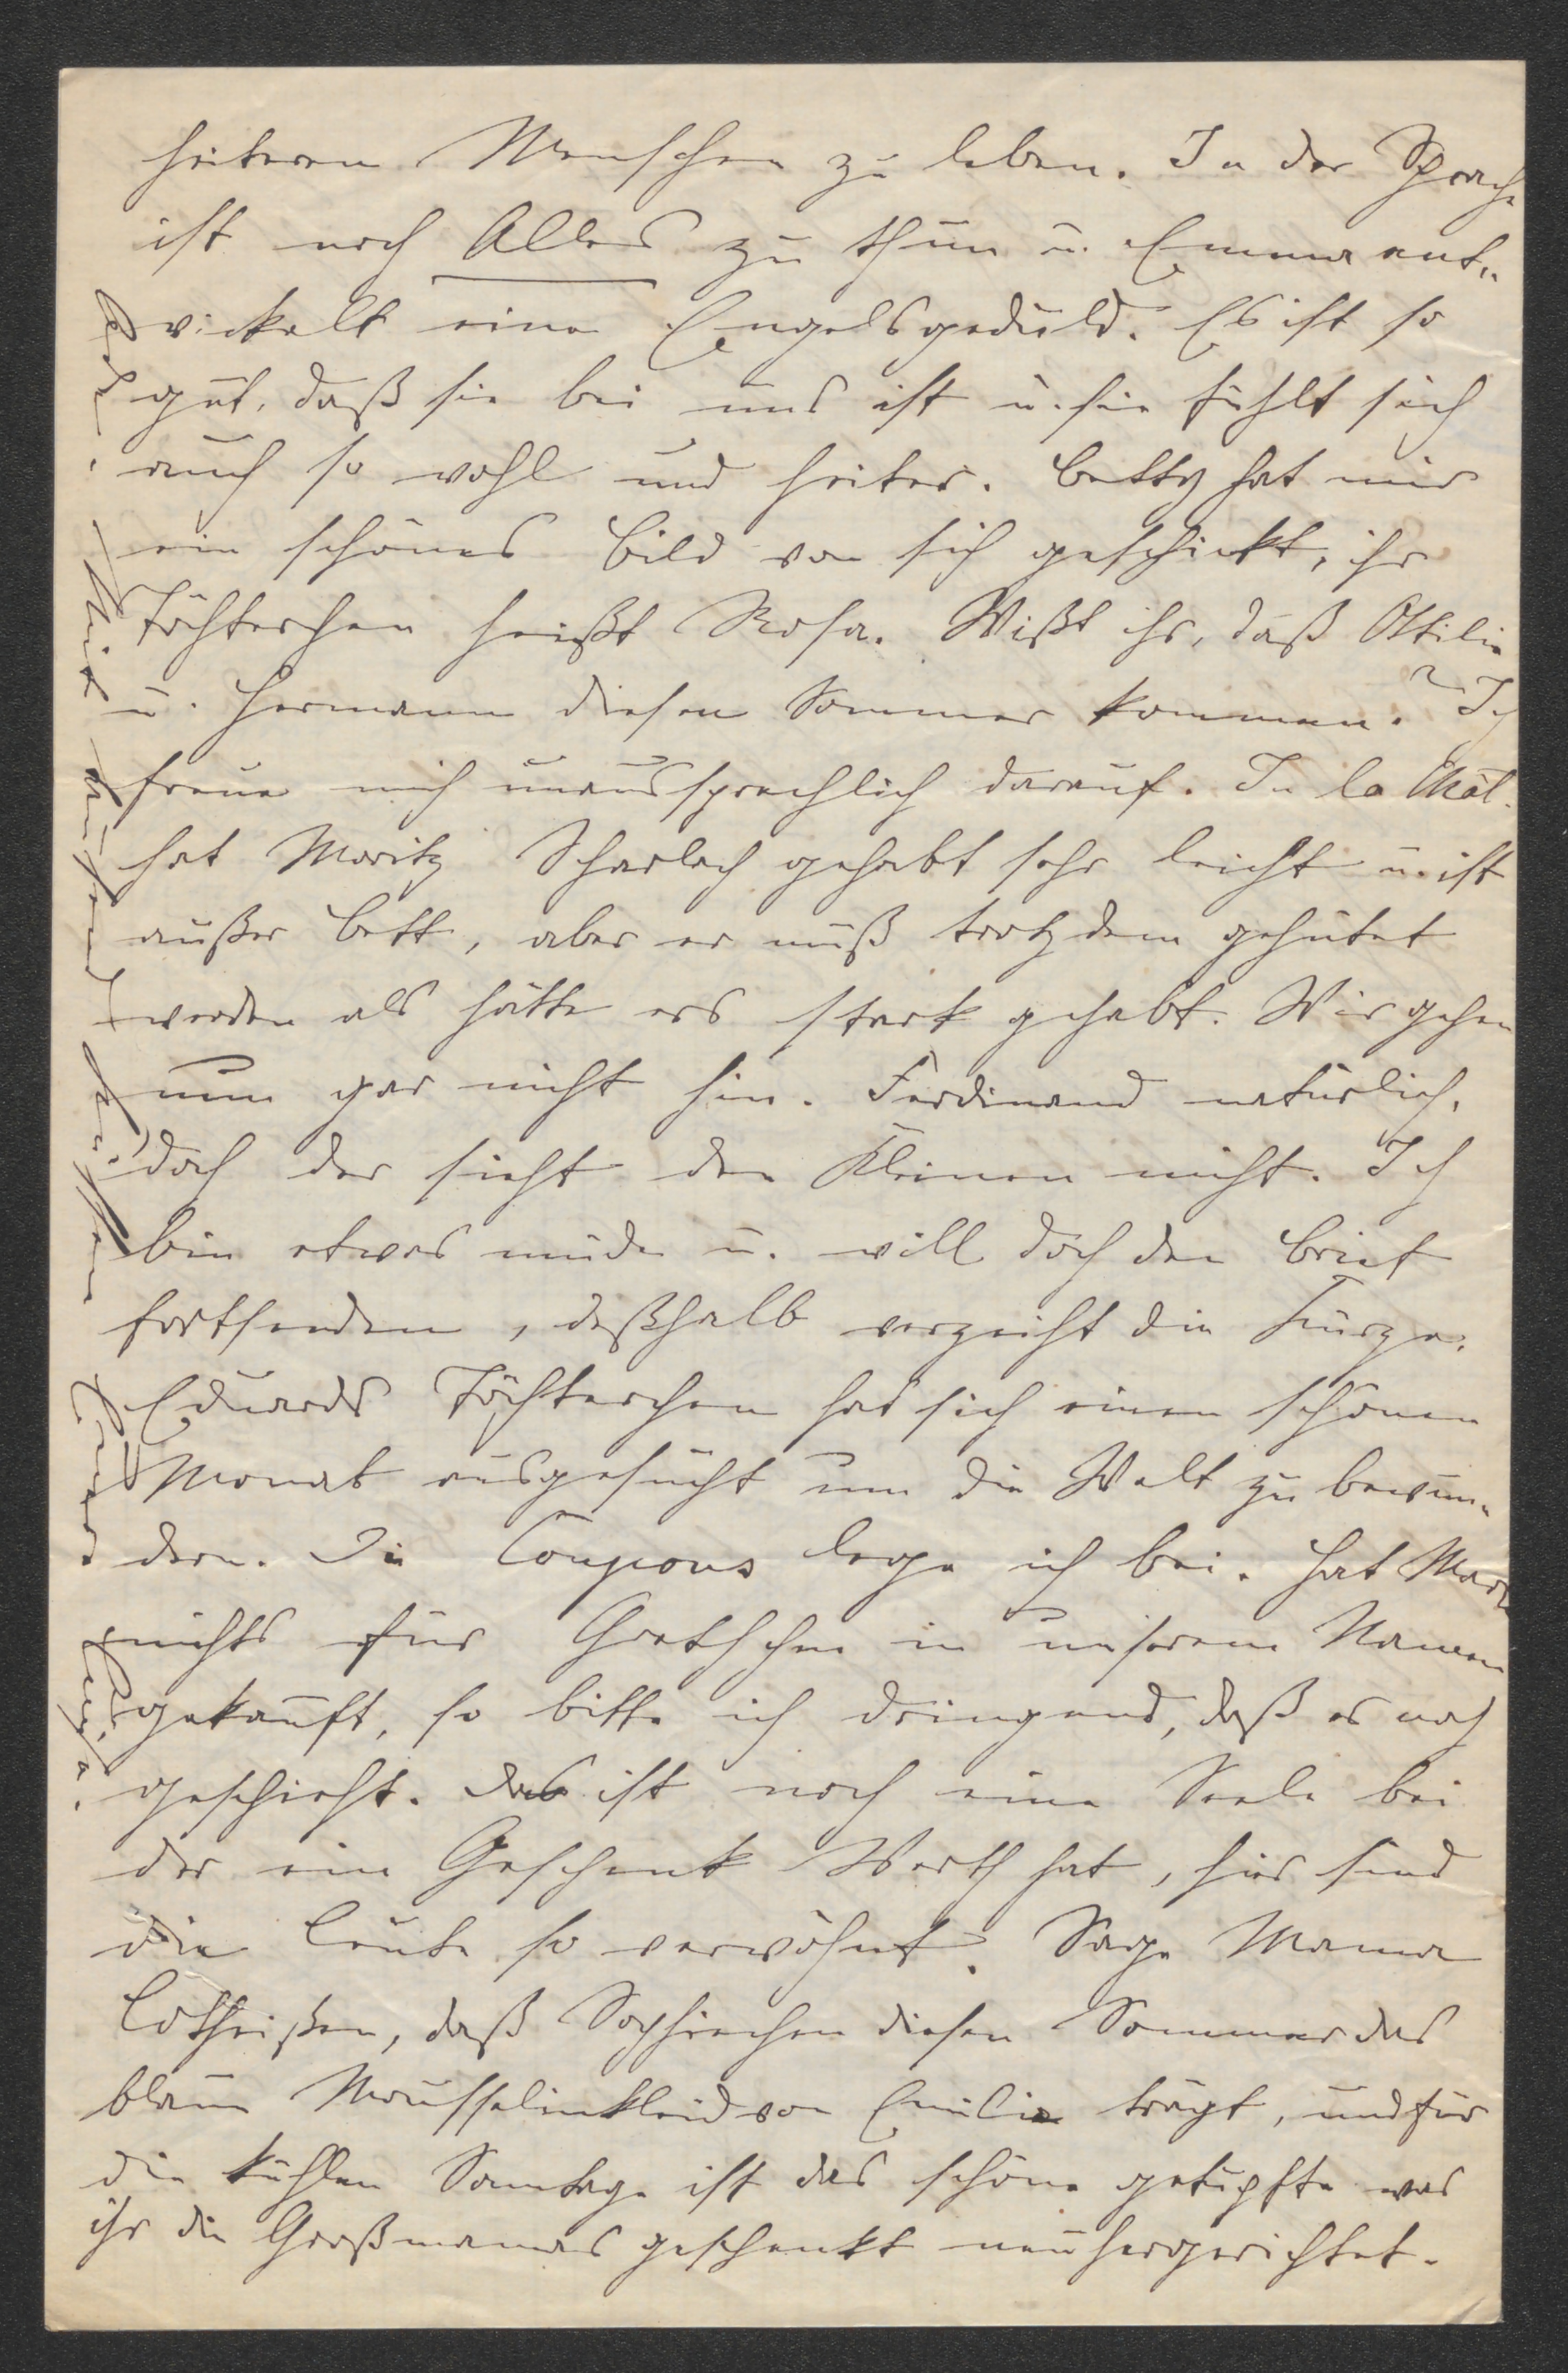 heiteren Menschen zu leben. In der Sprache
ist noch Alles zu thun u. Emma ent„
wickelt eine Engelsgeduld. Es ist so
gut, daß sie bei uns ist u. sie fühlt sich
auch so wohl und heiter. Betty hat mir
ein schönes Bild von sich geschickt, ihr
Töchterchen heißt Rosa. Wißt ihr, daß Ottilie
u. Hermann diesen Sommer kommen? Ich
freue mich unaussprechlich darauf. In la Chât.
hat Moritz Scharlach gehabt sehr leicht u. ist
außer Bett, aber er muß trotzdem gehütet
werden als hätte ers stark gehabt. Wir gehen
nun gar nicht hin. Ferdinand natürlich,
doch der sieht den Kleinen nicht. Ich
bin etwas müde u. will doch den Brief
fortsenden, deßhalb verzeiht die Kürze.
Eduards Töchterchen hat sich einen schönen
Monat ausgesucht um die Welt zu bewun„
dern. Die Coupons lege ich bei. Hat Marie
nichts für Gretchen in unserem Namen
gekauft, so bitte ich dringend, daß es noch
geschieht. Das ist noch eine Seele bei
der ein Geschenk Werth hat, hier sind
die Leute so verwöhnt. Sage Mama
Lotheißen, daß Sophiechen diesen Sommer das
blaue Mousselinkleid von Emilie trägt, und für
die kühlen Sonntage ist das schöne getüpfte was
ihr die Großmamas geschenkt neu hergerichtet.
Mit tausend Grüßen Eure
Luise.